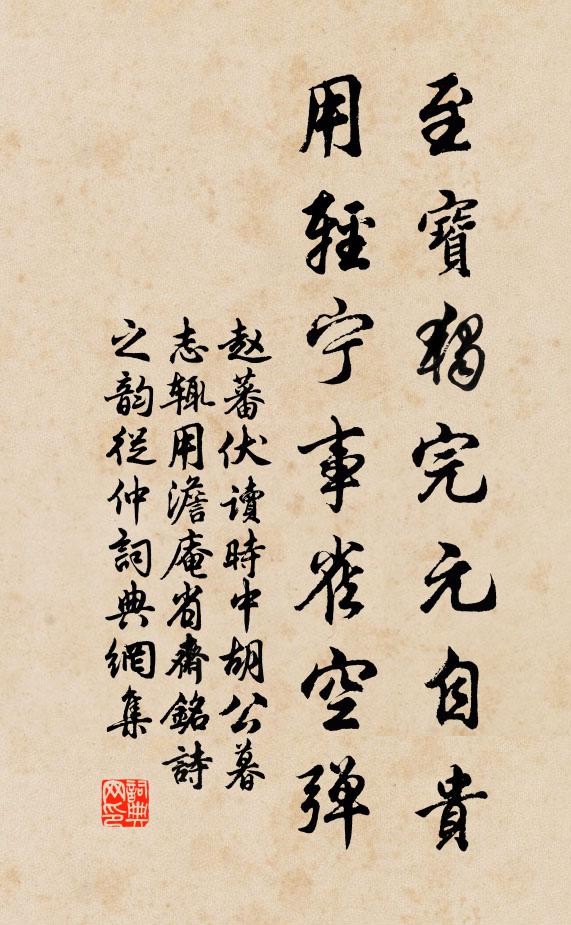 至寶獨完元自貴
用輕宁事雀空弹
赵蕃伏讀時中胡公暮
志輒用澹庵省齋銘詩
之韵從仲詞典網集
詞典网印